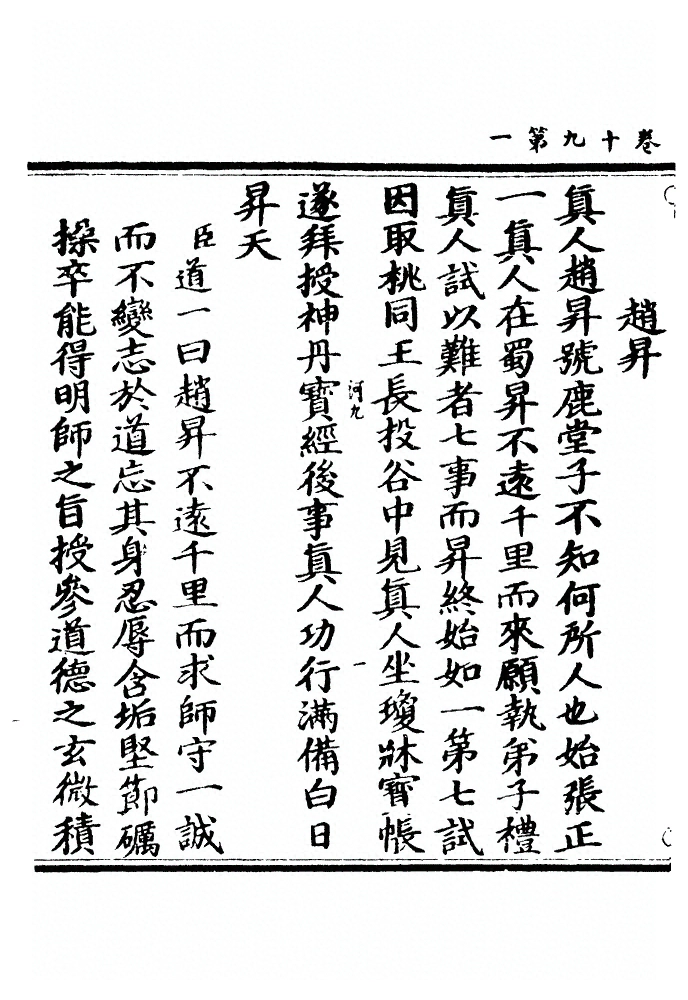 卷十九第一
趙昇
真人趙昇號鹿堂子不知何所人也始張正
一真人在蜀昇不遠千里而來願執弟子禮
真人試以難者七事而昇終始如一第七試
因取桃同王長投谷中見真人坐瓊牀寶帳
河九
遂拜授神丹寶經後事真人功行滿備白日
昇天
臣道一曰趙昇不遠千里而求師守一誠
而不變志於道忘其身忍辱含垢堅節礪
操卒能得明師之旨授參道德之玄微積